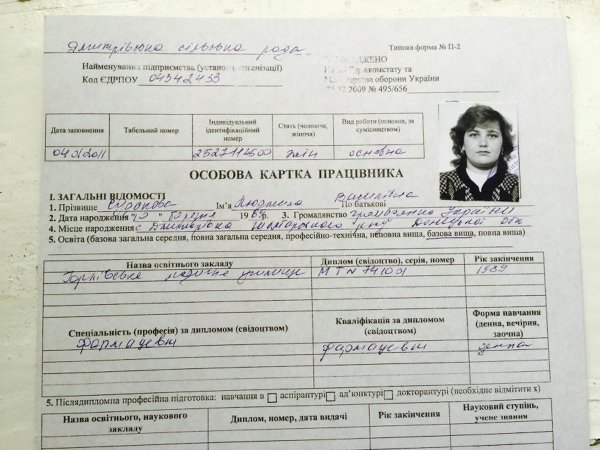 сільська рада
Типова форма № П-2
Найменування підприємства (установи, організації)
Код ЄДРПОУ 04342433
оборони України
2009 № 495/656
Дата заповнення
Табельний номер
Індивідуальний ідентифікаційний номер
Стать (чоловіча, жіноча)
Вид роботи (основна, за сумісництвом)
жін основна
ОСОБОВА КАРТКА ПРАЦІВНИКА
І. ЗАГАЛЬНІ ВІДОМОСТІ
1. Прізвище Ім'я Людмила По батькові Василівна
2. Дата народження 3. Громадянство громадянка України
4. Місце народження с. Дмитрівка Шахтарського р-ну Донецької обл
5. Освіта (базова загальна середня, повна загальна середня, професійно-технічна, неповна вища, базова вища, повна вища)
Назва освітнього закладу
Диплом (свідоцтво), серія, номер
Рік закінчення
медичне училище
Спеціальність (професія) за дипломом (свідоцтвом)
Кваліфікація за дипломом (свідоцтвом)
Форма навчання (денна, вечірня, заочна)
фармацевт фармацевт денна
5. Післядипломна професійна підготовка: навчання в аспірантурі ад'юнктурі докторантурі (необхідне відмітити x)
Назва освітнього, наукового закладу
Диплом, номер, дата видачі
Рік закінчення
Науковий ступінь, учене звання